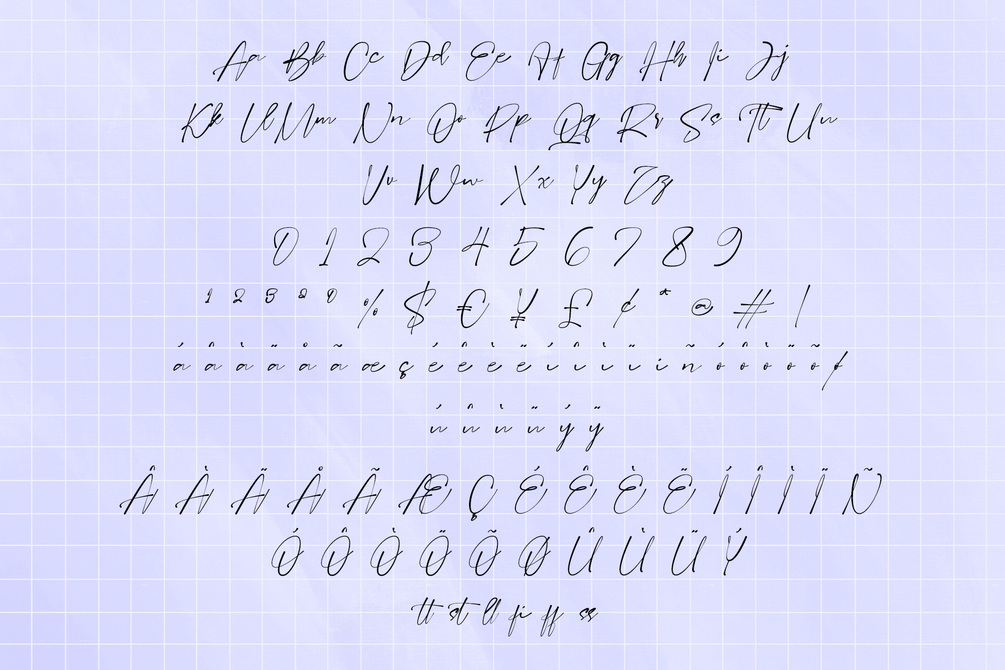 Aa Bb Cc Dd Ee Ff Gg Hh Ii Jj
Kk Ll Mm Nn Oo Pp Qq Rr Ss Tt Uu
Vv Ww Xx Yy Zz
0 1 2 3 4 5 6 7 8 9
% $ € ¥ £ ¢ * @ # !
á â à ä å ã æ ç é ê è ë í î ì ï i ñ ó ô ò ö õ ø
ú û ù ü ý ÿ
Â À Ä Å Ã Æ Ç É Ê È Ë Í Î Ì Ï Ñ
Ó Ô Ò Ö Õ Ø Û Ù Ü Ý
tt st ll fi ff ss